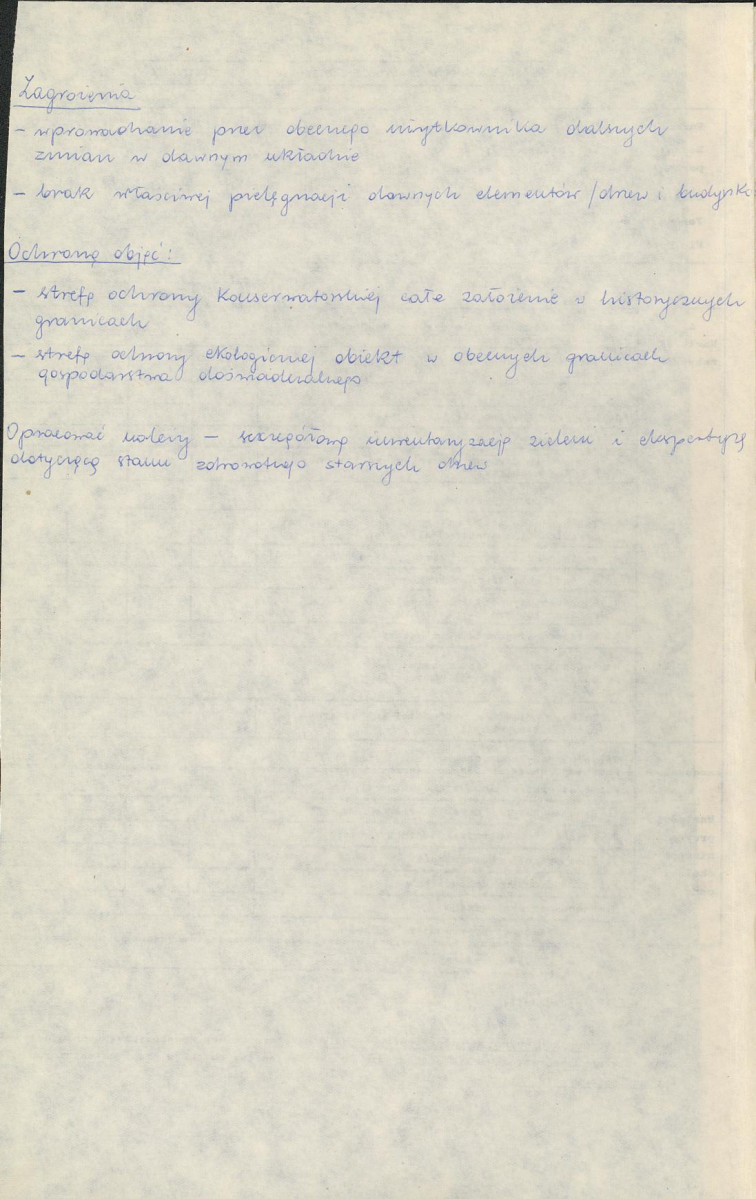 Zagrożenia
- wprowadzanie przez obecnego użytkownika dalszych
zmian w dawnym układzie
- brak właściwej pielęgnacji dawnych elementów /drzew i budynkó
Ochroną objąć:
- strefą ochrony konserwatorskiej całe założenie w historycznych
granicach
- strefą ochrony ekologicznej obiekt w obecnych granicach
gospodarstwa doświadczalnego
Opracować należy - szczegółową inwentaryzację zieleni i ekspertyzę
dotyczącą stanu zdrowotnego starszych drzew